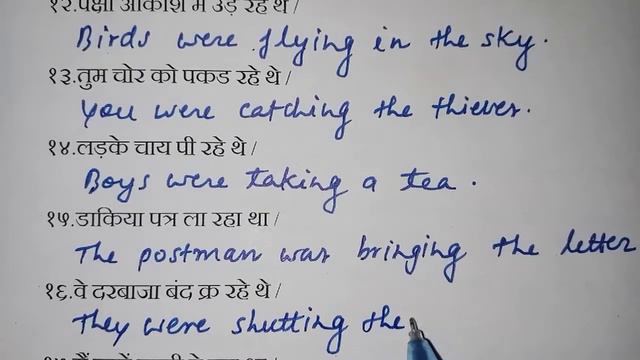 १२.पक्षी आकाश में उड़ रहे थे /
Birds were flying in the sky.
१३.तुम चोर को पकड रहे थे /
You were catching the thieves.
१४.लड़के चाय पी रहे थे /
Boys were taking a tea.
१५.डाकिया पत्र ला रहा था /
The postman was bringing the letter
१६.वे दरबाजा बंद क्र रहे थे /
They were shutting the